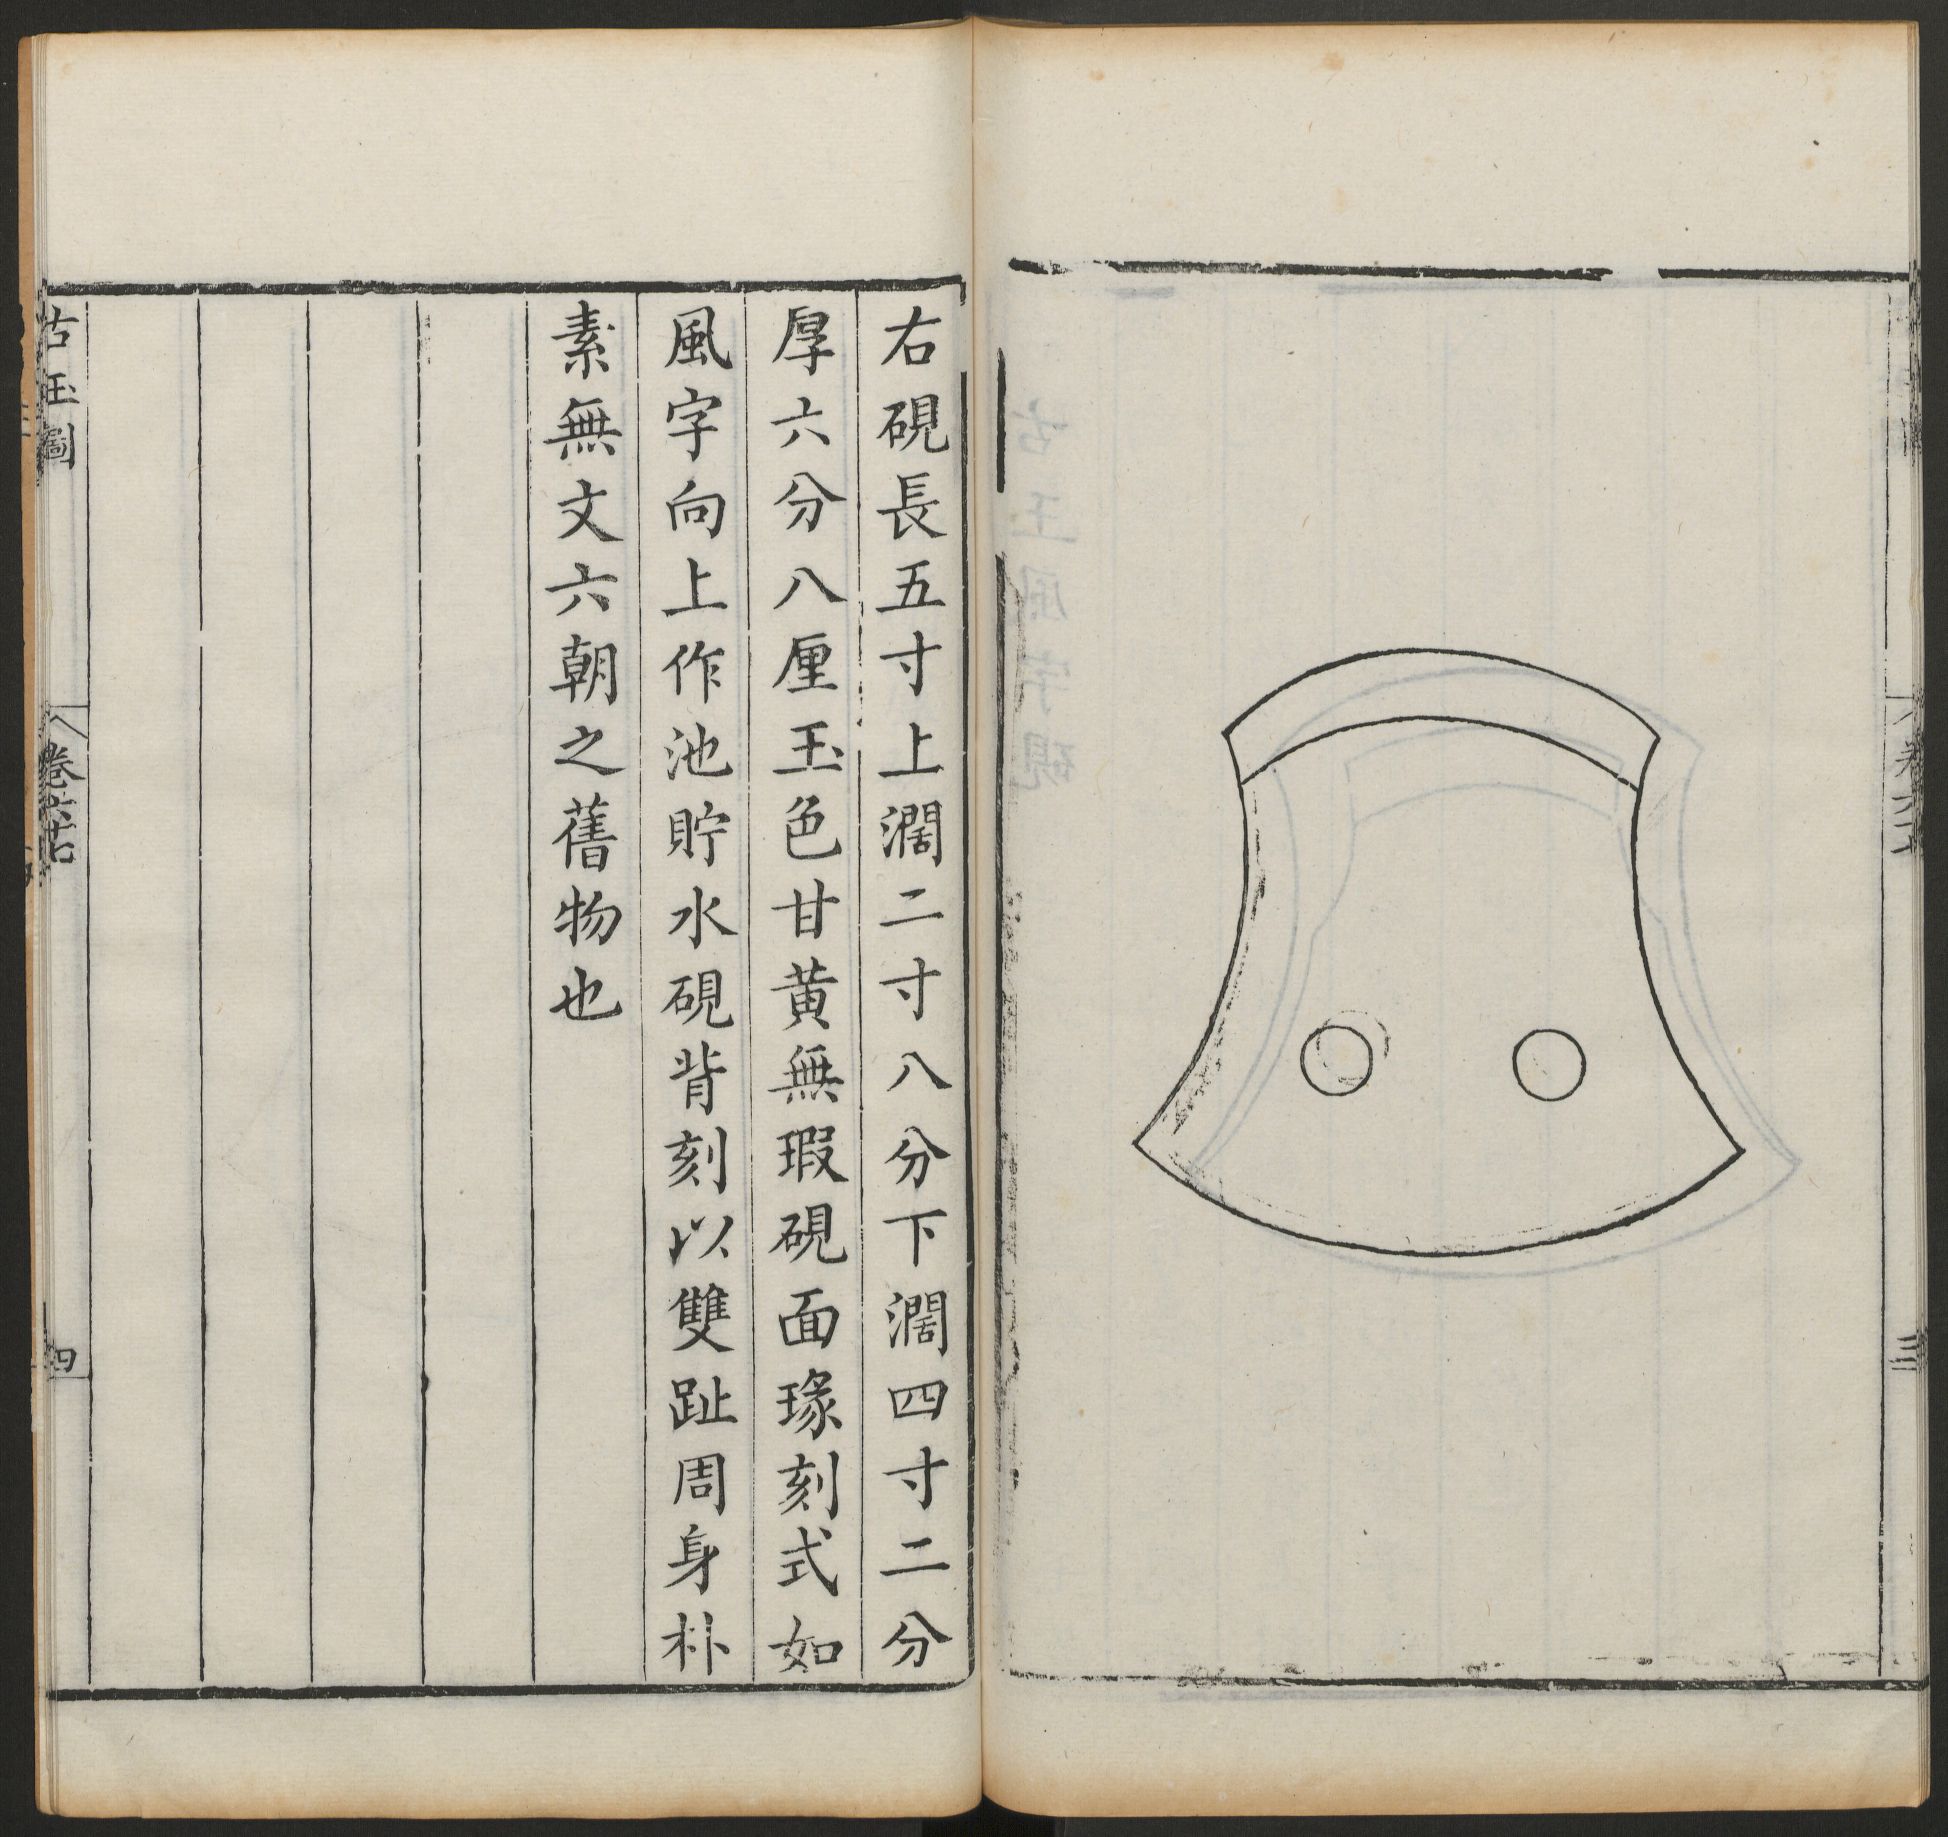 右硯長五寸上濶二寸八分下濶四寸二分
厚六分八厘玉色甘黄無瑕硯面瑑刻式如
風字向上作池貯水硯背刻以雙趾周身朴
素無文六朝之舊物也
古玉圖
卷六
四
三